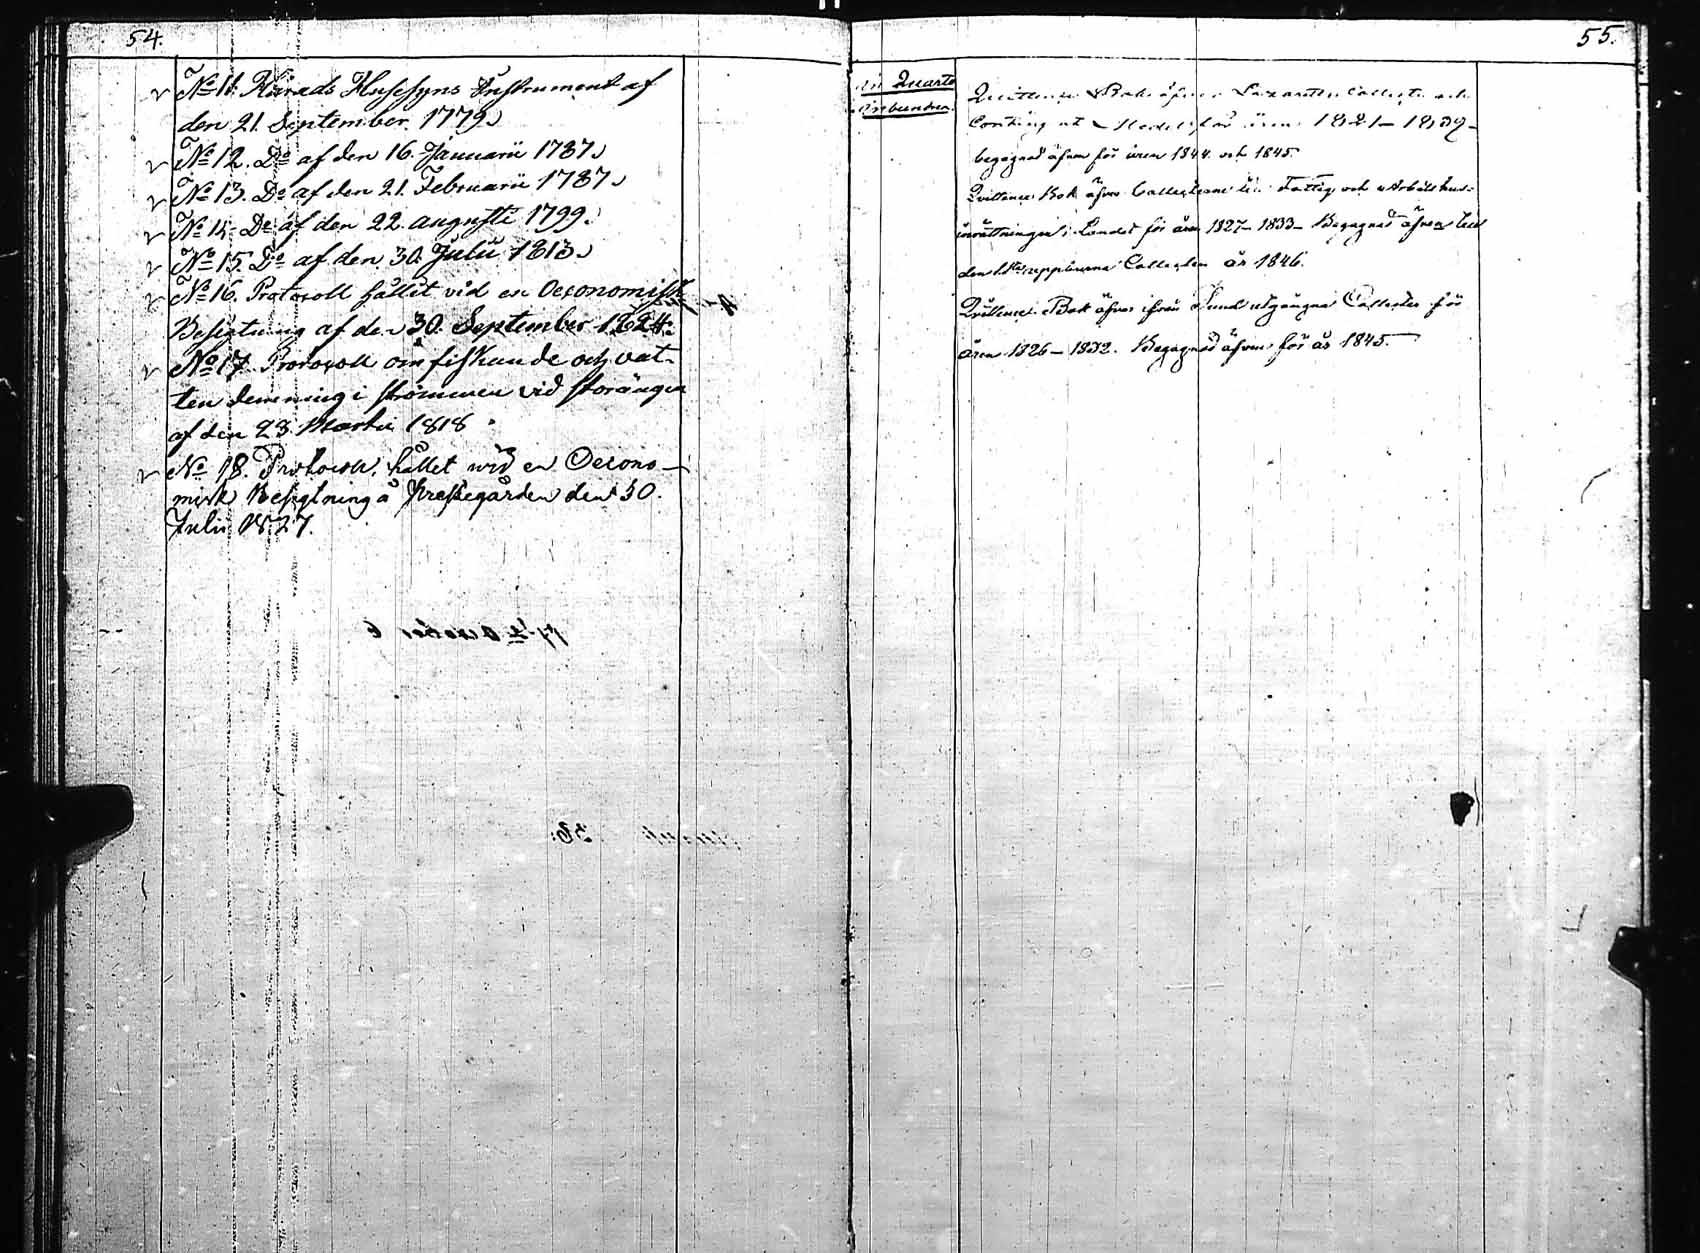 54.
No 11. Härads Husesyns Instrument af
den 21. September. 1779.
No 12. Do af den 16. Januarii 1787.
No 13. Do af den 21. Februarii 1787.
No 14. Do af den 22. augusti 1799.
No 15. Do af den 30. Julii 1813.
No 16. Protocoll hållit vid en Oeconomisk
Besigtning af den 30. September 1824.
No 17. Protocoll om fiskande och vat-
ten demning i strömmen vid storängen
af den 23. Martii 1818
No 18. Protocoll, hållet wid en Oecono-
misk Besigtning å Prestegården den 30.
Julii 1827.
55.
in Quarto
inbunden.
Quittence Bok öfver Lazaretts Collecte och
Medel för åren 1821-1839-
begagnad äfven för åren 1844. och 1845.
Qvittence Bok öfver Collecterne till Fattig och Arbetshus-
inrättningen i Landet för åren 1827-1833- Begagnad äfven till
den uppburna Collecten år 1846.
Qvittence Bok öfver ifrån Sund utgångna Collecter för
åren 1826-1832. Begagnad äfven för år 1845.